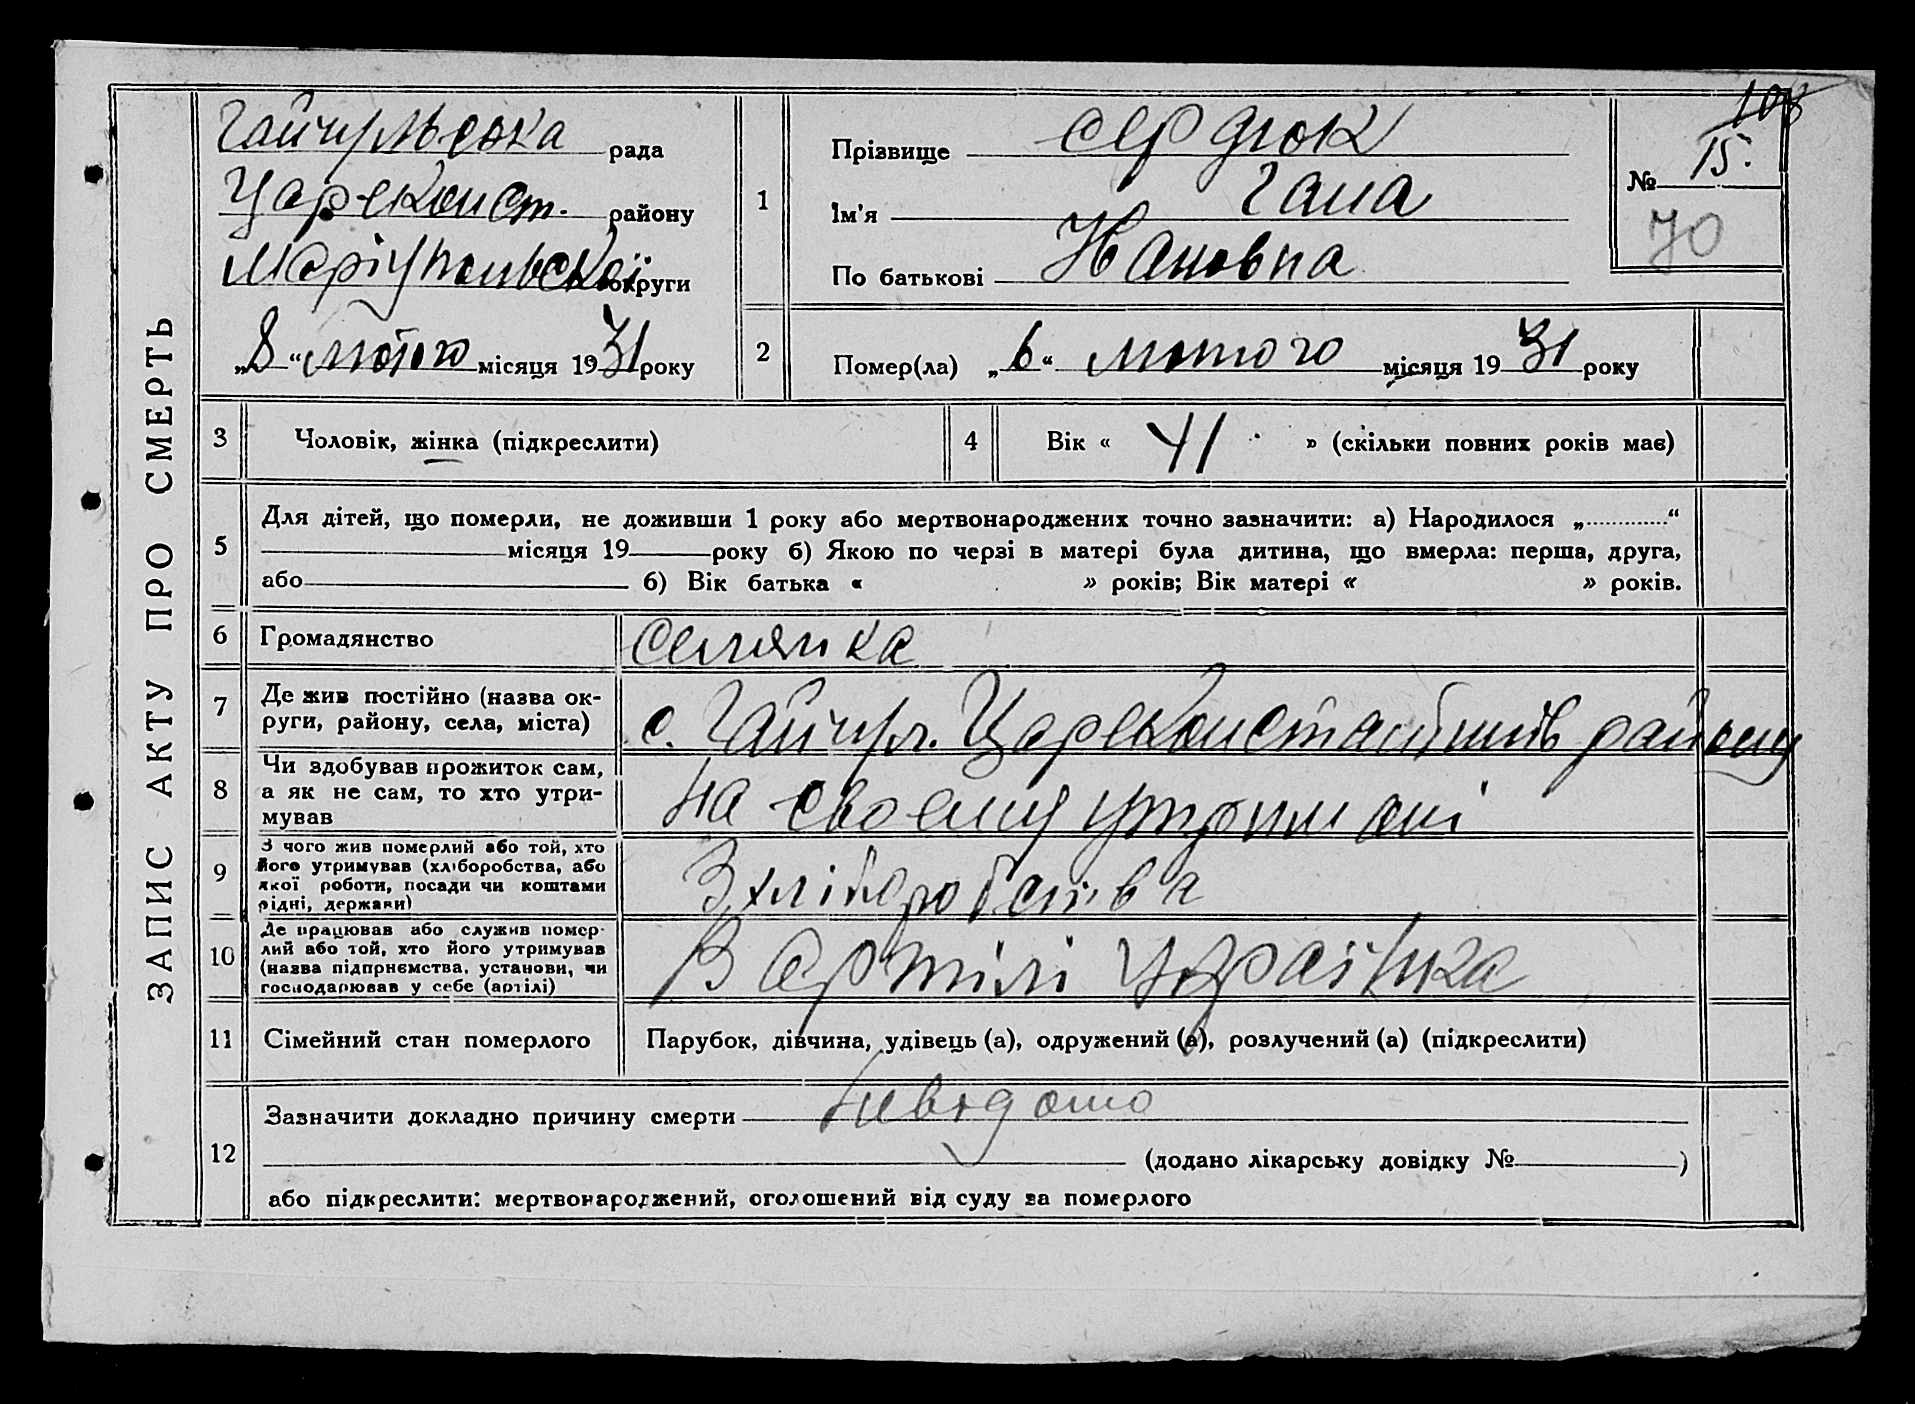 ЗАПИС АКТУ ПРО СМЕРТЬ
Гайчульська рада
Царекконст. району
Маріупольської округи
„8“ лютого місяця 1931 року
1
Прізвище Сердюк
Ім'я Гана
По батькові Івановна
108
№ 15.
70
2
Помер(ла) „6“ лютого місяця 1931 року
3 Чоловік, жінка (підкреслити)
4 Вік « 41 » (скільки повних років має)
5
Для дітей, що померли, не доживши 1 року або мертвонароджених точно зазначити: а) Народилося „ “
місяця 19 року б) Якою по черзі в матері була дитина, що вмерла: перша, друга,
або б) Вік батька « » років; Вік матері « » років.
6 Громадянство селянка
7 Де жив постійно (назва ок-
руги, району, села, міста)
с. Гайчул. Царекконстантинів району
8 Чи здобував прожиток сам,
а як не сам, то хто утри-
мував
На своєму утриманi
9 З чого жив померлий або той, хто
його утримував (хліборобства, або
якої роботи, посади чи коштами
рідні, держави)
З хліборобства
10 Де працював або служив помер-
лий або той, хто його утримував
(назва підприємства, установи, чи
господарював у себе (артілі)
В артілі Українка
11 Сімейний стан померлого Парубок, дівчина, удівець (а), одружений (а), розлучений (а) (підкреслити)
12
Зазначити докладно причину смерти невідомо
(додано лікарську довідку № )
або підкреслити: мертвонароджений, оголошений від суду за померлого